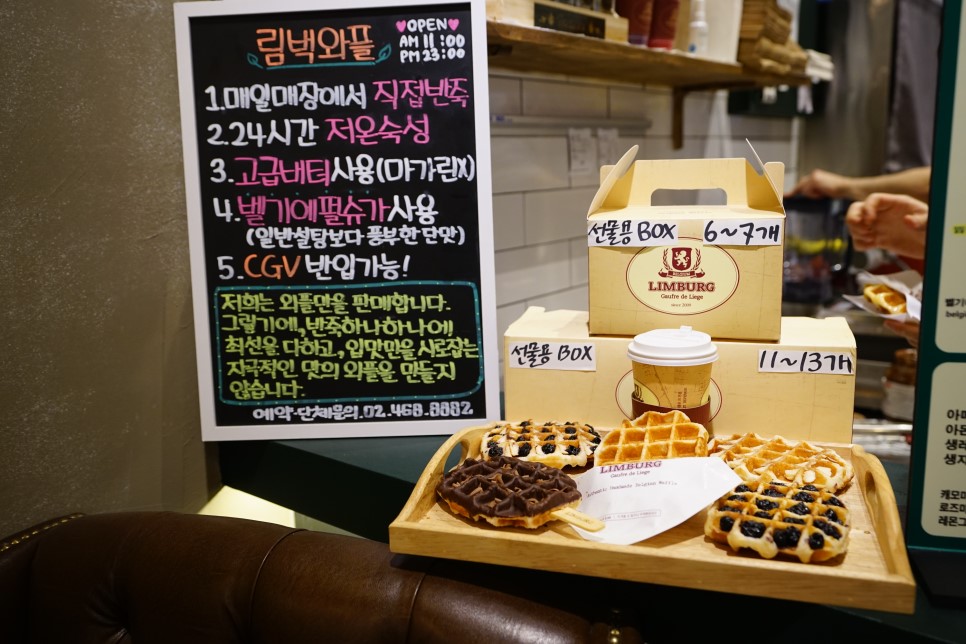 림벅와플
♥OPEN♥
AM 11:00
PM 23:00
1.매일매장에서 직접반죽
2.24시간 저온숙성
3.고급버터사용(마가린X)
4.벨기에펄슈가사용
(일반설탕보다 풍부한 단맛)
5.CGV 반입가능!
저희는 와플만을 판매합니다.
그렇기에, 반죽하나하나에
최선을 다하고, 입맛만을 사로잡는
자극적인 맛의 와플을 만들지
않습니다.
예약·단체문의.02.468.8882
선물용 BOX
6~7개
LIMBURG
Gaufre de Liege
since 2009
선물용 BOX
11~13개
LIMBURG
Gaufre de Liege
Authentic Handmade Belgian Waffle